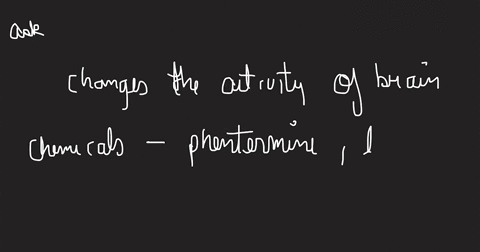 ask
changes the activity of brain
chemicals – phentermine, l